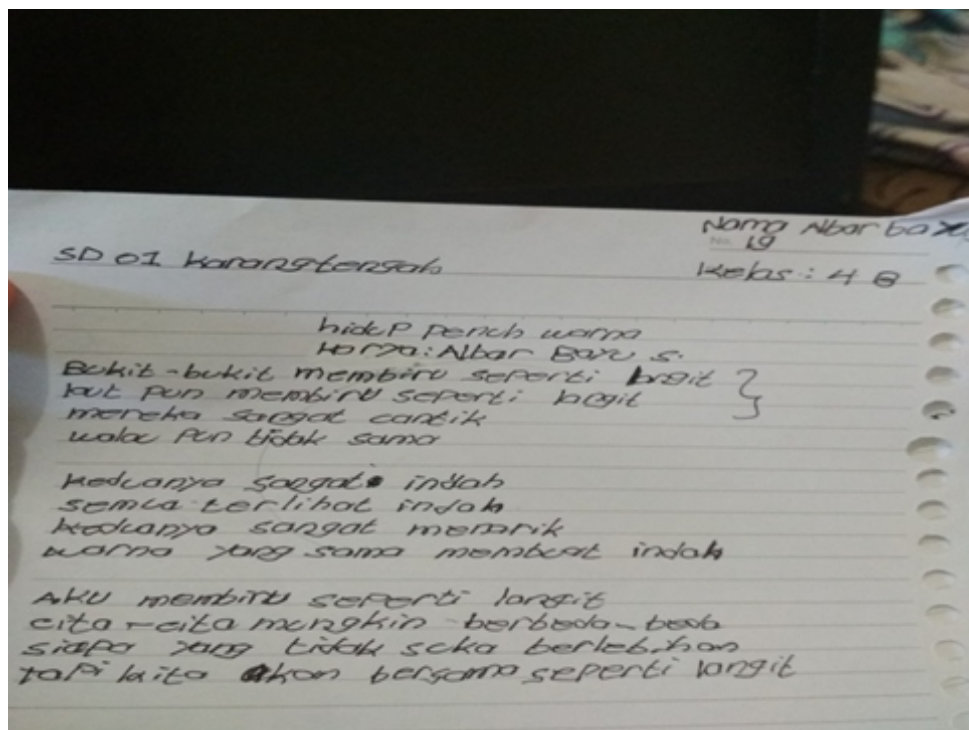 Nama Albar bayu
No. 19
SD 01 Karangtengah
Kelas : 4 B
hidup penuh warna
Karya : Albar Bayu S.
Bukit-bukit membiru seperti langit
laut pun membiru seperti langit
mereka sangat cantik
walau pun tidak sama
keduanya sangat indah
semua terlihat indah
keduanya sangat menarik
warna yang sama membuat indah
AKU membiru seperti langit
cita-cita mungkin berbeda-beda
siapa yang tidak suka berlebihan
tapi kita akan bersama seperti langit